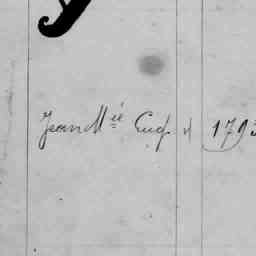 y
Jean Mie Cuq 1793